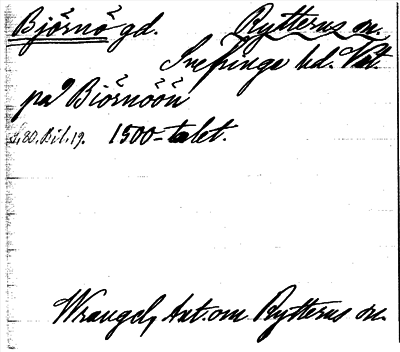 Björnö gd. Rytterns sn.
Snefringe hd. Vstl.
på Biörnöön
L. 80. Bil. 19. 1500-talet.
Wrangel, Ant. om Rytterns sn.